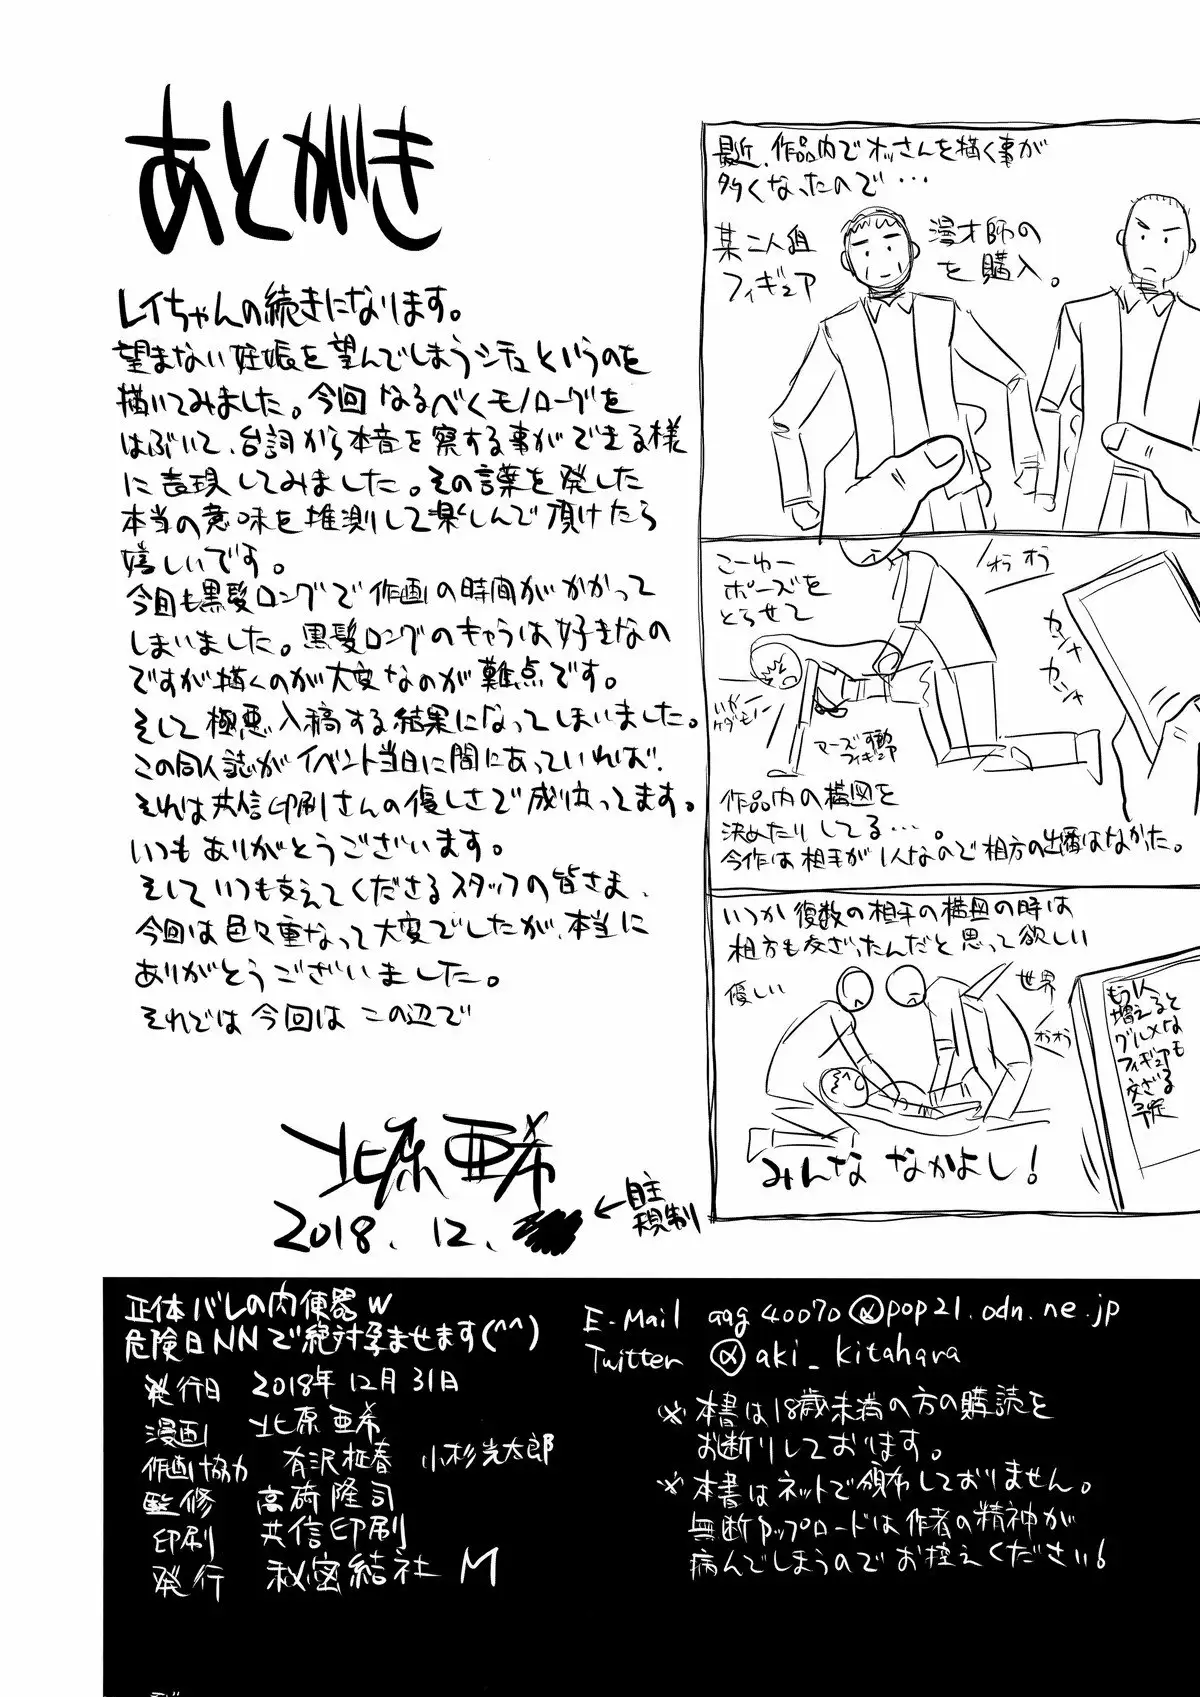 あとがき
レイちゃんの続きになります。
望まない妊娠を望んでしまうシチュというのを
描いてみました。今回なるべくモノローグを
はぶいて、台詞から本音を察する事ができる様
に表現してみました。その言葉を発した
本当の意味を推測して楽しんで頂けたら
嬉しいです。
今回も黒髪ロングで作画の時間がかかって
しまいました。黒髪ロングのキャラは好きなの
ですが描くのが大変なのが難点です。
そして極悪入稿する結果になってしまいました。
この同人誌がイベント当日に間にあっていれば、
それは共信印刷さんの優しさで成り立ってます。
いつもありがとうございます。
そしていつも支えてくださるスタッフの皆さま、
今回は色々重なって大変でしたが、本当に
ありがとうございました。
それでは今回はこの辺で
北原亜希
2018.12.
←自主
規制
最近、作品内でオッさんを描く事が
多くなったので…
某二人組漫才師の
フィギュアを購入。
こーゆー
ポーズを
とらせて
オラオラ
カシャ
カシャ
いやー
ケダモノー
マーズ
可動
フィギュア
作品内の構図を
決めたりしてる…。
今作は相手が1人なので相方の出番はなかった。
いつか複数の相手の構図の時は
相方も交ざったんだと思って欲しい
優しい
世界
オラオラ
もう1人
増えると
グルメな
フィギュアも
交ざる
予定
みんななかよし!
正体バレの肉便器w
危険日NNで絶対孕ませます(^^)
発行日 2018年12月31日
漫画 北原亜希
作画協力 有沢柾春 小杉光太郎
監修 高崎隆司
印刷 共信印刷
発行 秘密結社M
E-Mail aag40070@pop21.odn.ne.jp
Twitter @aki_kitahara
※本書は18歳未満の方の購読を
お断りしております。
※本書はネットで頒布しておりません。
無断アップロードは作者の精神が
病んでしまうのでお控えください!